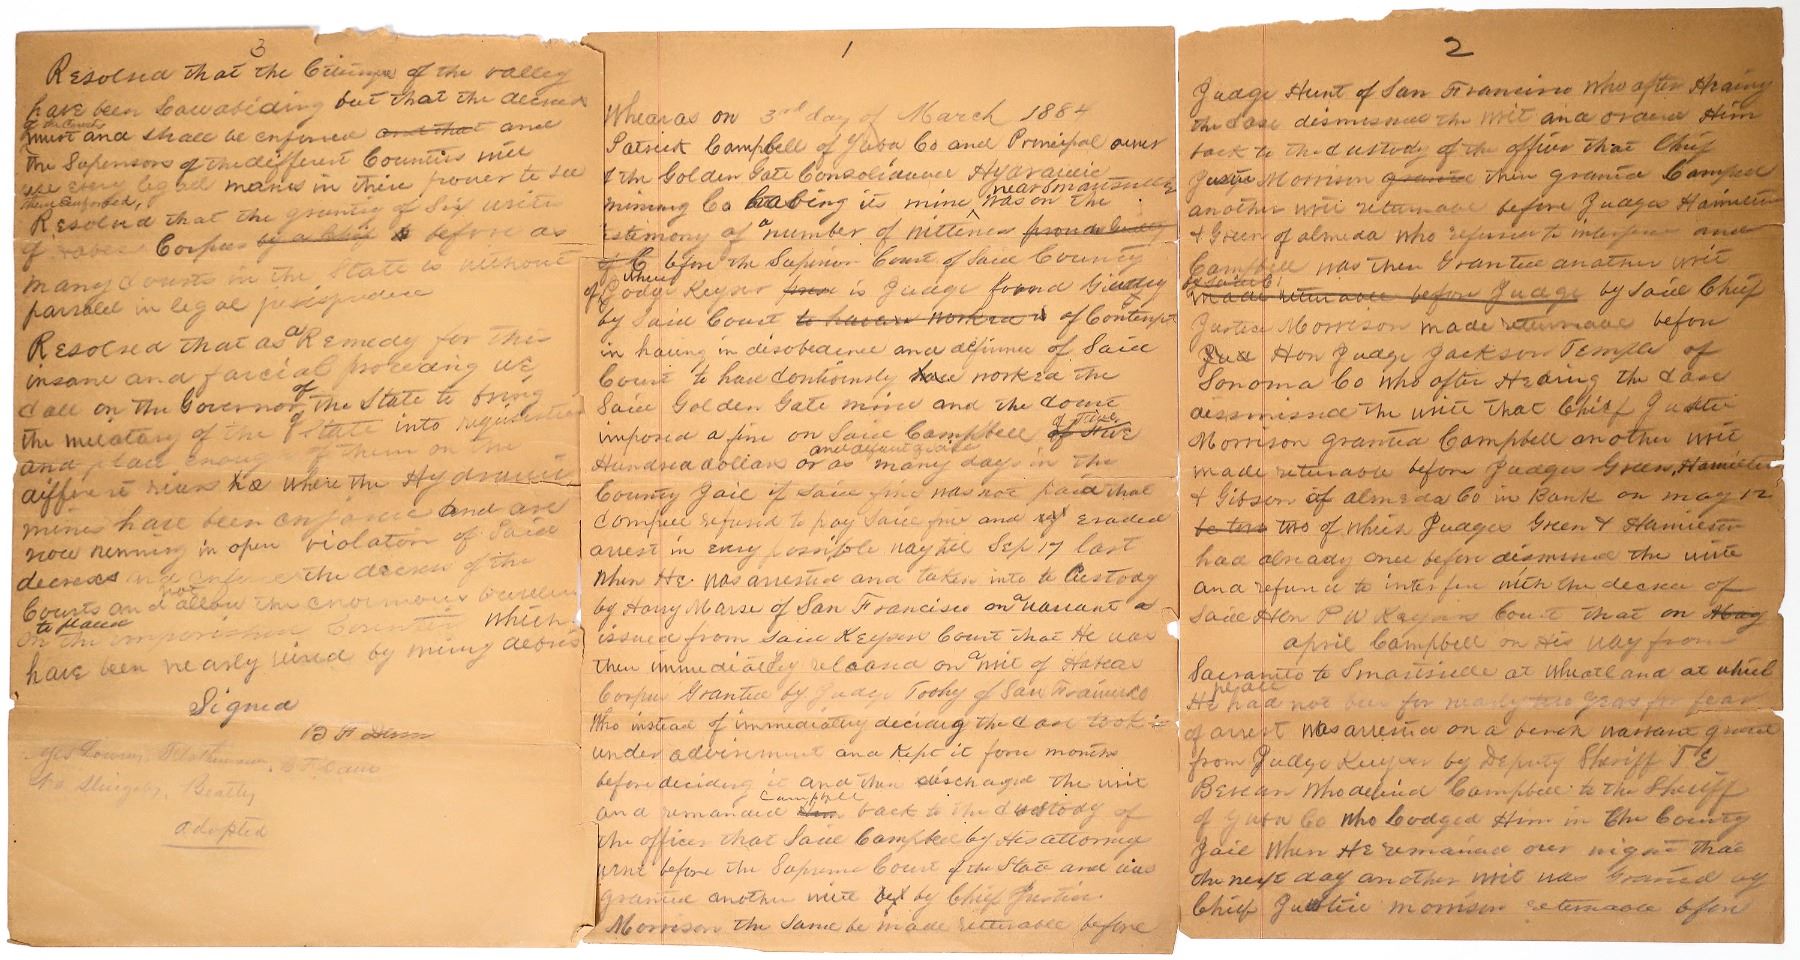 1
Whearas on 3rd day of March 1884
Patrick Campbell of Yuba Co and Principal owner
of the Golden Gate Consolidance Hydraulic
near Smartsville
mining Co having its mine was on the
testimony of a number of wittness from a
of C before the Superior Court of Said County
of where Judge Keyser is Judge found Guilty
by Said Court to have worked is of Contempt
in having in disobedience and defience of Said
Court to have Continously worked the
Said Golden Gate mine and the Court
imposed a fine on Said Campbell of Five
Hundred dollars or as many days in the
County Jail if Said fine was not paid that
Campbell refused to pay Said fine and evaded
arrest in every possible way til Sep 17 last
When He was arrested and taken into to Custody
by Harry Marse of San Francisco on a warrant
issued from Said Keysers Court that He was
then immediately released on a writ of Habeas
Corpus Granted by Judge Toohy of San Francisco
Who instead of immediately deciding the Case took it
under advisment and Kept it for months
before deciding it and then discharged the writ
Campbell
and remanded him back to the Custody of
the officer that Said Campbell by His attorney
went before the Supreme Court of the State and was
granted another write by Chief Justice
Morrison the Same be made returnable before
2
Judge Hunt of San Francisco Who after Hearing
the Case dismissed the writ and ordered Him
back to the Custody of the officer that Chief
Justice Morrison granted then granted Campbell
another writ returnable before Judges Hamilton
& Green of almeda who refused to interfere and
Campbell was then Granted another writ
made returnable before Judge by Said Chief
Justice Morrison made returnable before
Hon Judge Jackson Temple of
Sonoma Co who after Hearing the Case
dissmissed the write that Chief Justice
Morrison granted Campbell another writ
made returnable before Judges Green, Hamilton
& Gibson of almeda Co in Bank on may 12
two of which Judges Green & Hamilton
had already once before dismissed the write
and refused to interfere with the decree of
Said Hon P W Keysers Court that on May
april Campbell on His way from
Sacramento to Smartsville at Wheatland at which
place
He had not been for nearly two years for fear
of arrest was arrested on a bench warrant
from Judge Keyser by Deputy Sheriff T E
Bevan Who delivered Campbell to the Sheriff
of Yuba Co who Lodged Him in the County
Jail When He remained over night that
the next day another writ was Granted by
Chief Justice morrison returnable before
3
Resolved that the Citizens of the valley
have been Lawabiding but that the decrees
of the Courts
must and shall be enforced and that and
the Supervisors of the different Counties will
use every legal means in their power to see
them enforced,
Resolved that the granting of Six writs
of Corpus before as
many Courts in the State is without
parralel in legal
Resolved that as a Remedy for this
insane and farcial proceding we
Call on the Governor of the State to bring
the of the State into
and place enough of them on the
different where the Hydraulic
mines have been enjoined and are
now running in open violation of Said
decrees and enforce the decrees of the
Courts and not allow the enormous
to place
on the Counties which
have been nearly by mining debris
Signed
B F Dam
adopted